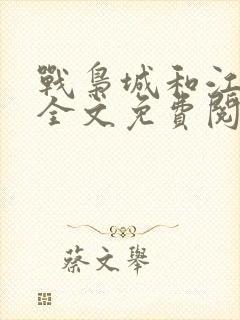 戰梟城和江
全文免費閱
蔡文舉